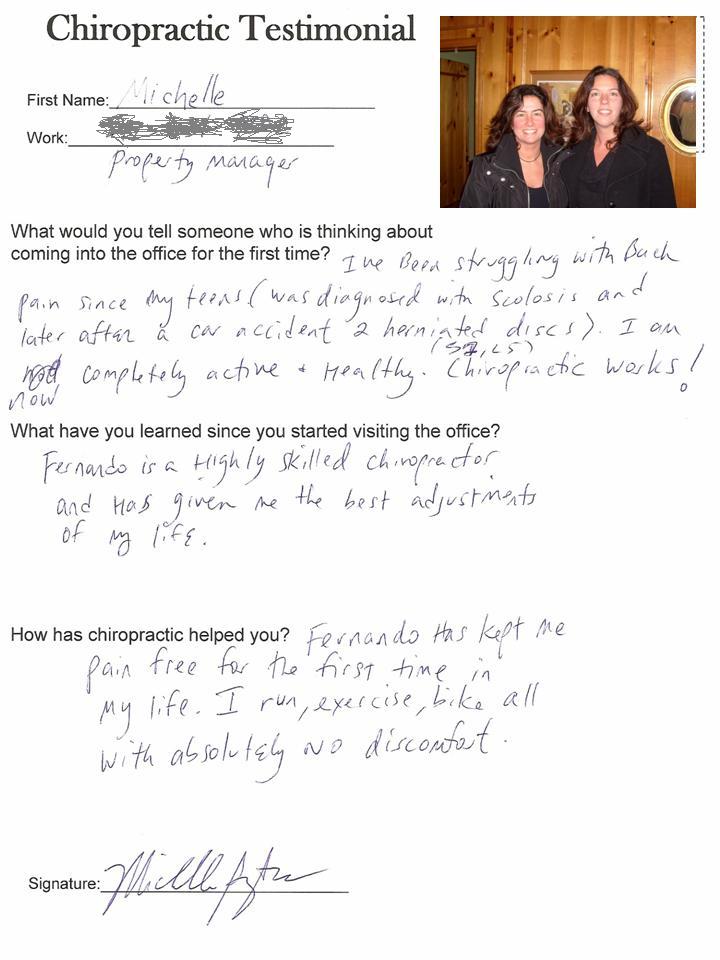 Chiropractic Testimonial
First Name: Michelle
Work:
Property Manager
What would you tell someone who is thinking about
coming into the office for the first time? I've Been struggling with Back
pain since my teens (was diagnosed with Scolosis and
later after a car accident 2 herniated discs). I am
(S1, L5)
now completely active + Healthy. Chiropractic works!
What have you learned since you started visiting the office?
Fernando is a Highly skilled chiropractor
and Has given me the best adjustments
of my life.
How has chiropractic helped you? Fernando Has kept me
pain free for the first time in
my life. I run, exercise, bike all
with absolutely NO discomfort.
Signature: Michelle